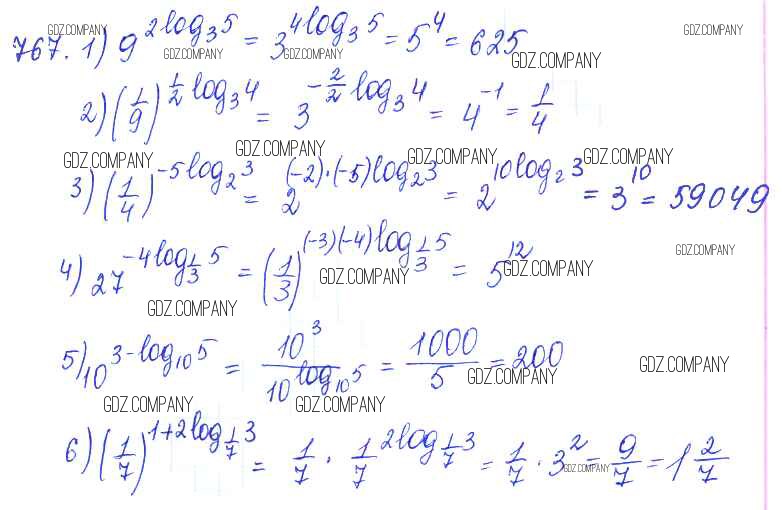 767. 1) 9^{2log_3 5} = 3^{4log_3 5} = 5^4 = 625
2) (1/9)^{1/2 log_3 4} = 3^{-2/2 log_3 4} = 4^{-1} = 1/4
3) (1/4)^{-5log_2 3} = 2^{(-2)·(-5)log_2 3} = 2^{10log_2 3} = 3^{10} = 59049
4) 27^{-4log_{1/3} 5} = (1/3)^{(-3)(-4)log_{1/3} 5} = 5^{12}
5) 10^{3-log_{10} 5} = 10^3/10^{log_{10} 5} = 1000/5 = 200
6) (1/7)^{1+2log_{1/7} 3} = 1/7 · 1/7^{2log_{1/7} 3} = 1/7 · 3^2 = 9/7 = 1 2/7
GDZ.COMPANY GDZ.COMPANY
GDZ.COMPANY GDZ.COMPANY GDZ.COMPANY
GDZ.COMPANY
GDZ.COMPANY GDZ.COMPANY GDZ.COMPANY
GDZ.COMPANY
GDZ.COMPANY GDZ.COMPANY
GDZ.COMPANY
GDZ.COMPANY GDZ.COMPANY
GDZ.COMPANY GDZ.COMPANY
GDZ.COMPANY